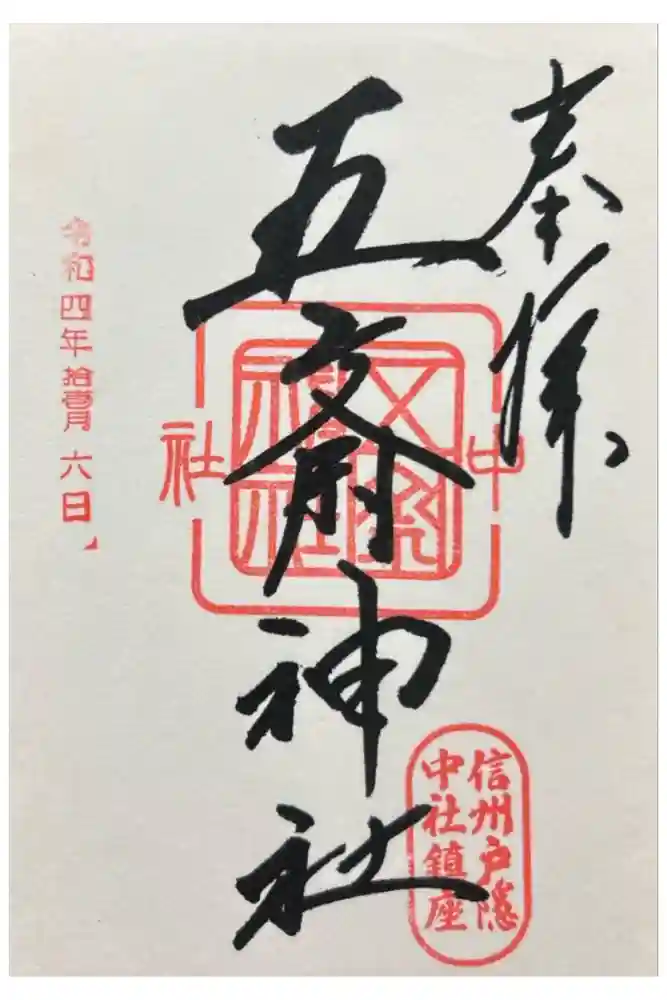 奉拝
五斎神社
中社
五斎神社
信州戸隠
中社鎮座
令和四年拾壹月六日